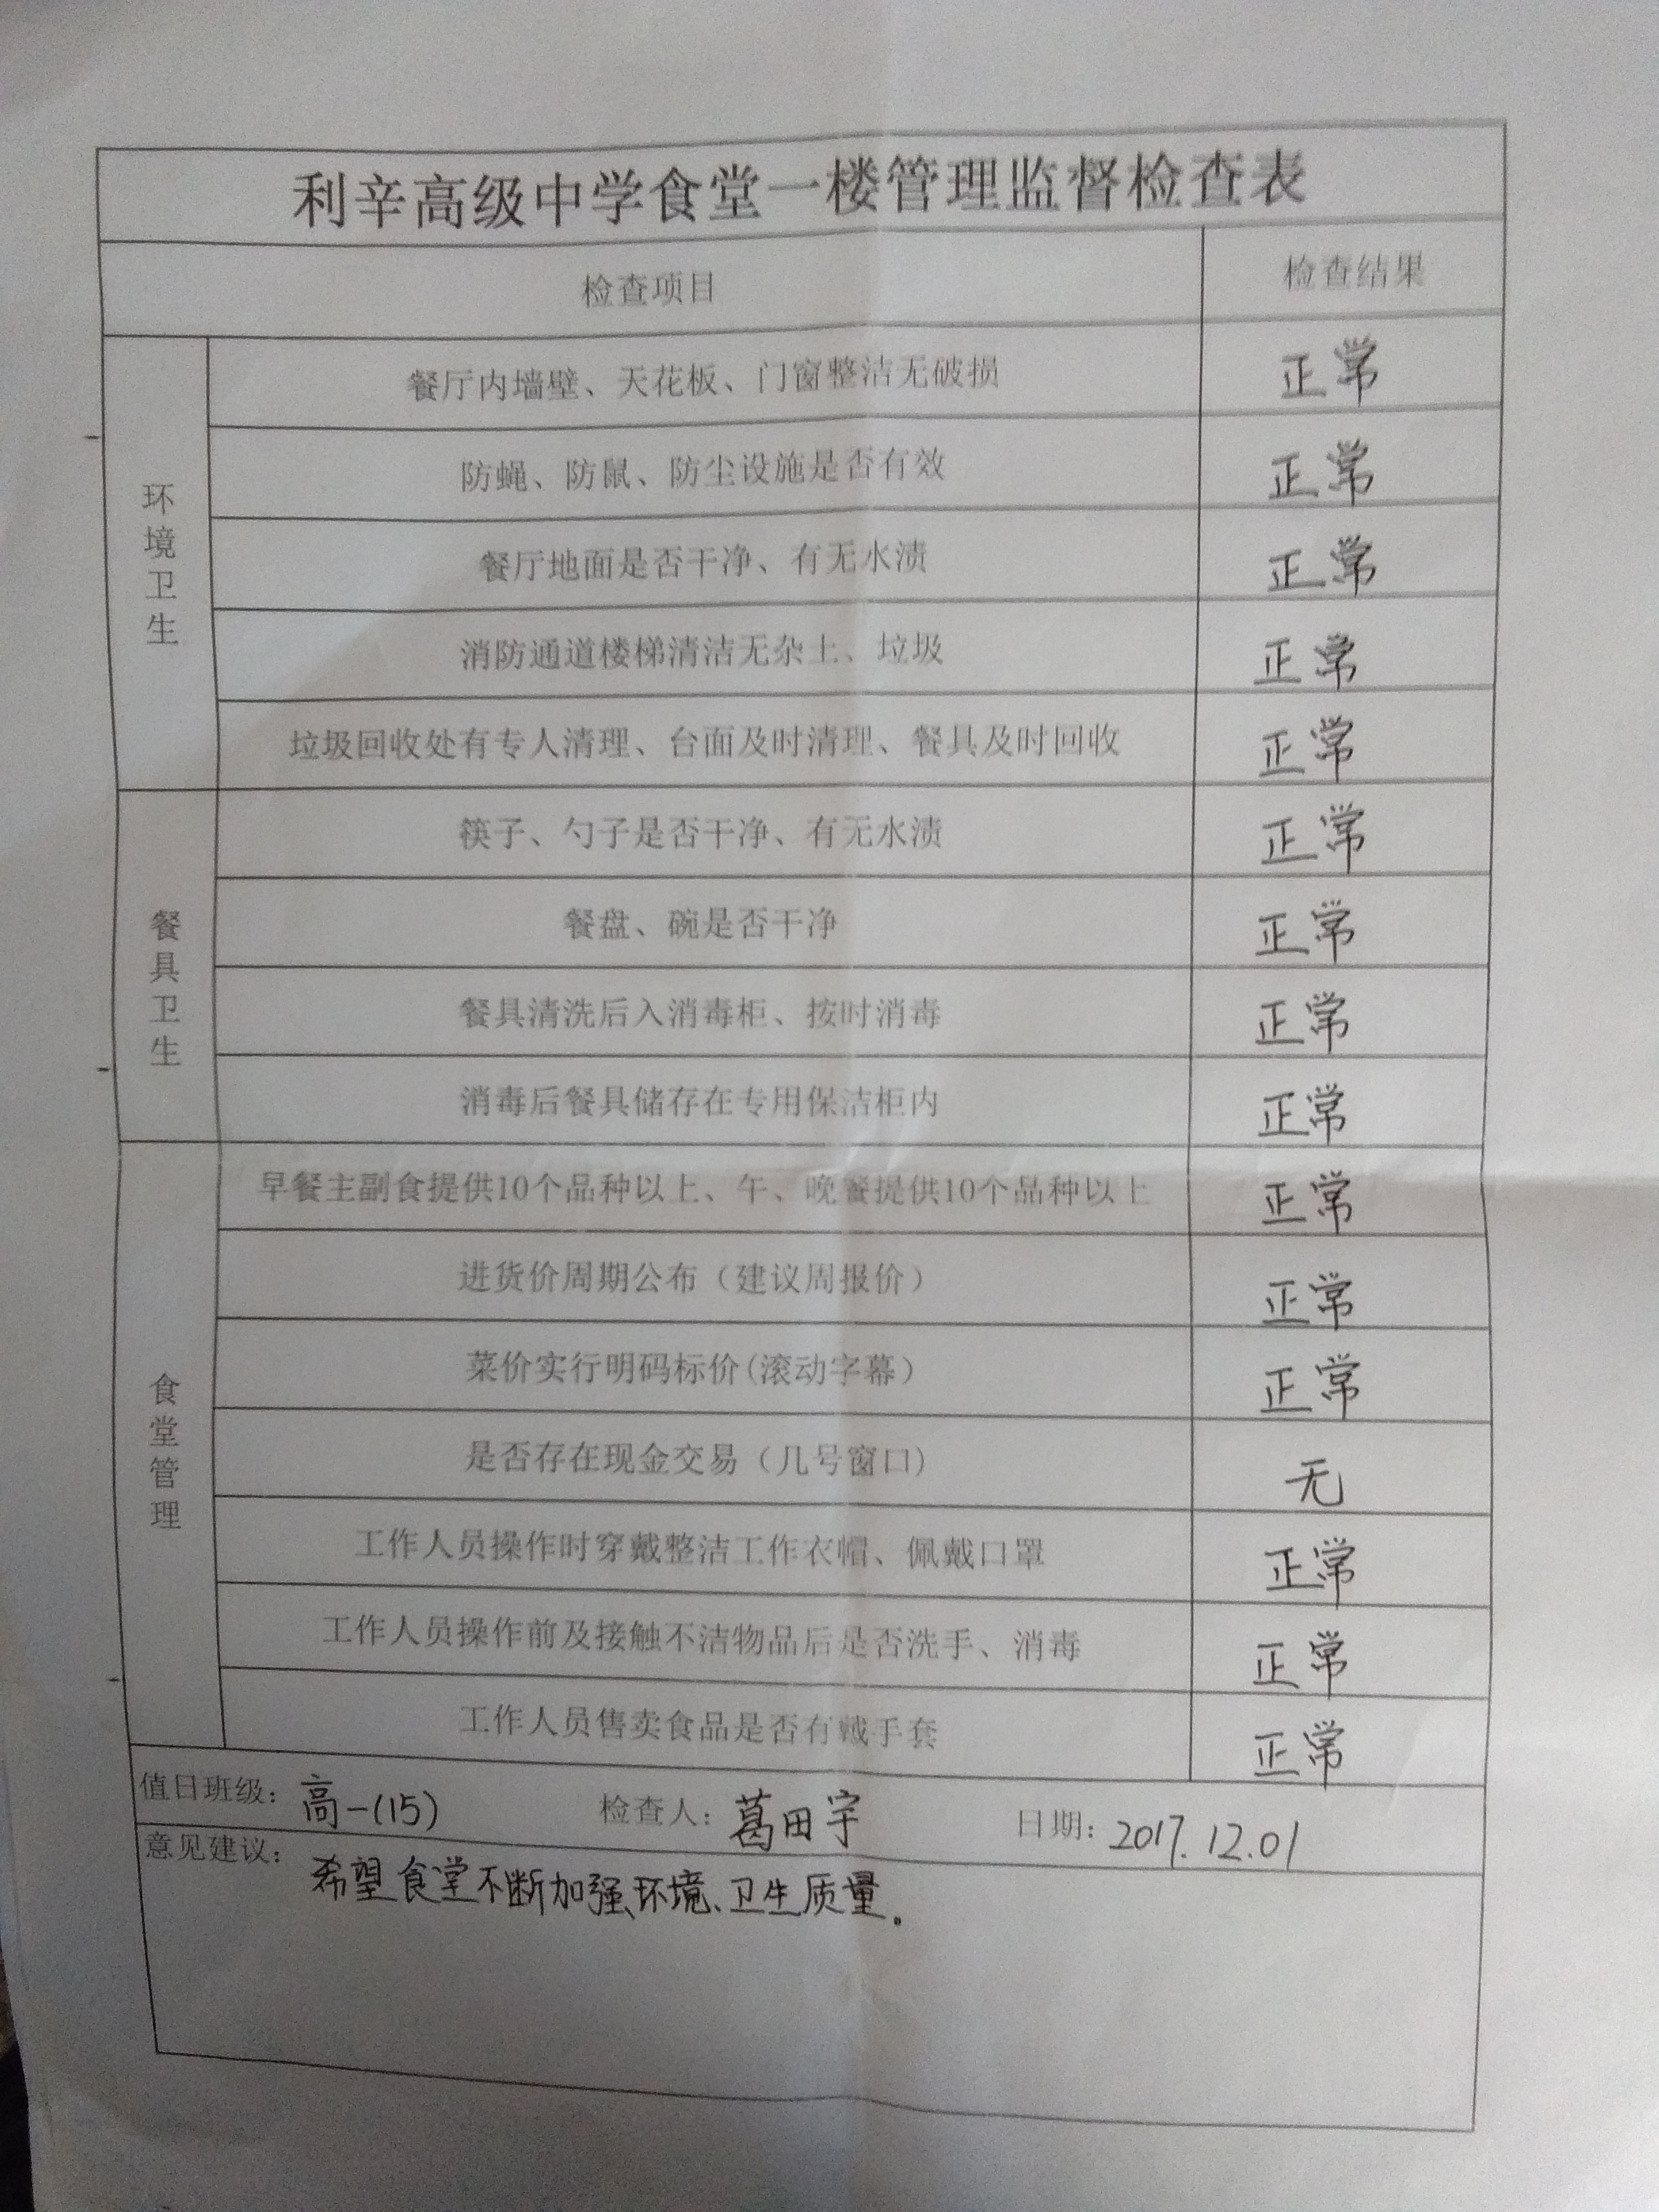 利辛高级中学食堂一楼管理监督检查表
检查项目 检查结果
环境卫生
餐厅内墙壁、天花板、门窗整洁无破损 正常
防蝇、防鼠、防尘设施是否有效 正常
餐厅地面是否干净、有无水渍 正常
消防通道楼梯清洁无杂土、垃圾 正常
垃圾回收处有专人清理、台面及时清理、餐具及时回收 正常
餐具卫生
筷子、勺子是否干净、有无水渍 正常
餐盘、碗是否干净 正常
餐具清洗后入消毒柜、按时消毒 正常
消毒后餐具储存在专用保洁柜内 正常
食堂管理
早餐主副食提供10个品种以上、午、晚餐提供10个品种以上 正常
进货价周期公布（建议周报价） 正常
菜价实行明码标价(滚动字幕） 正常
是否存在现金交易（几号窗口） 无
工作人员操作时穿戴整洁工作衣帽、佩戴口罩 正常
工作人员操作前及接触不洁物品后是否洗手、消毒 正常
工作人员售卖食品是否有戴手套 正常
值日班级：高一(15) 检查人：葛田宇 日期：2017.12.01
意见建议：
希望食堂不断加强环境、卫生质量。